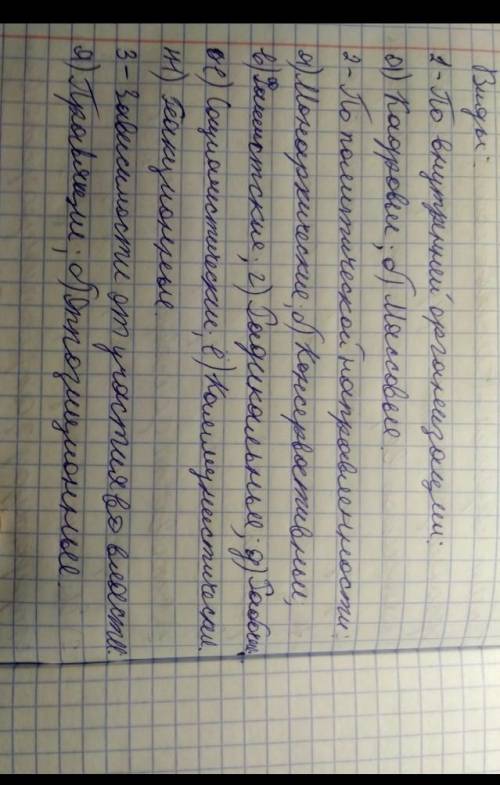 Виды:
1- По внутренней организации:
а) Кадровые; б) Массовые
2- По политической направленности:
а) Монархические; б) Консервативные;
в) Фашистские; г) Радикальные; д) Рабочие
ое) Социалистические; е) Коммунистические.
ж) Реакционные.
3- Зависимости от участия во власти:
а) Правящие; б) Оппозиционные.